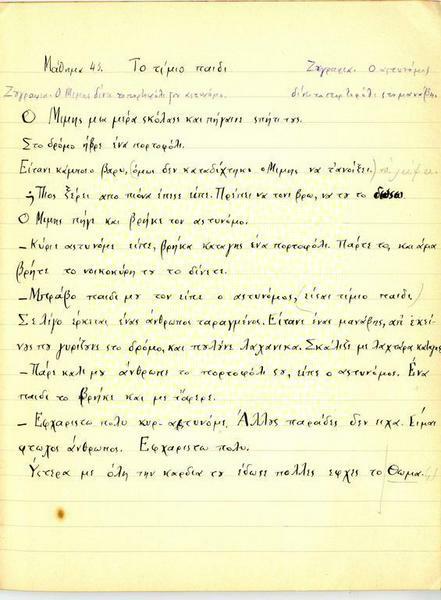 Μάθημα 45. Το τίμιο παιδί Ζωγραφικη. Ο αστυνόμος
Ζωγραφικη. Ο Μίμης δίνει το πορτοφόλι στον αστυνόμο. δίνει το πορτοφόλι στο μανάβη.
Ο Μίμης μια μέρα σκόλασε και πήγαινε σπήτι του.
Στο δρόμο ήβρε ένα πορτοφόλι.
Είτανι κάμποσο βαρύ, όμως δεν καταδέχτηκε ο Μίμης να τ'ανοίξει.
– Πιος ξέρει απο πιόνα έπεσε είπε. Πρέπει να τονε βρω, να του το δώσω.
Ο Μίμης πήγε και βρήκε τον αστυνόμο.
– Κύριε αστυνόμε είπε, βρήκα καταγης ένα πορτοφόλι. Πάρτε το, και άμα
βρήτε το νοικοκύρη του το δίνετε.
– Μπράβο παιδί μου τον είπε ο αστυνόμος, (είσαι τίμιο παιδί)
Σε λίγο έρχεται ένας άνθρωπος ταραγμένος. Είτανι ένας μανάβης, απ' εκεί-
νους που γυρίζουνε στο δρόμο, και πουλούνε λαχανικα. Σκάλιζε με λαχτάρα κατα γης
– Πάρε καλέ μου άνθρωπε το πορτοφόλι σου, είπε ο αστυνόμος. Ένα
παιδί το βρήκε και με τόφερε.
– Εφχαριστω πολυ κυρ-αστυνόμε. Άλλους παράδες δεν ειχα. Είμαι
φτωχος άνθρωπος. Εφχαριστω πολυ.
Ύστερα με όλη την καρδια του έδωσε πολλες εφχες το Θωμα. 45